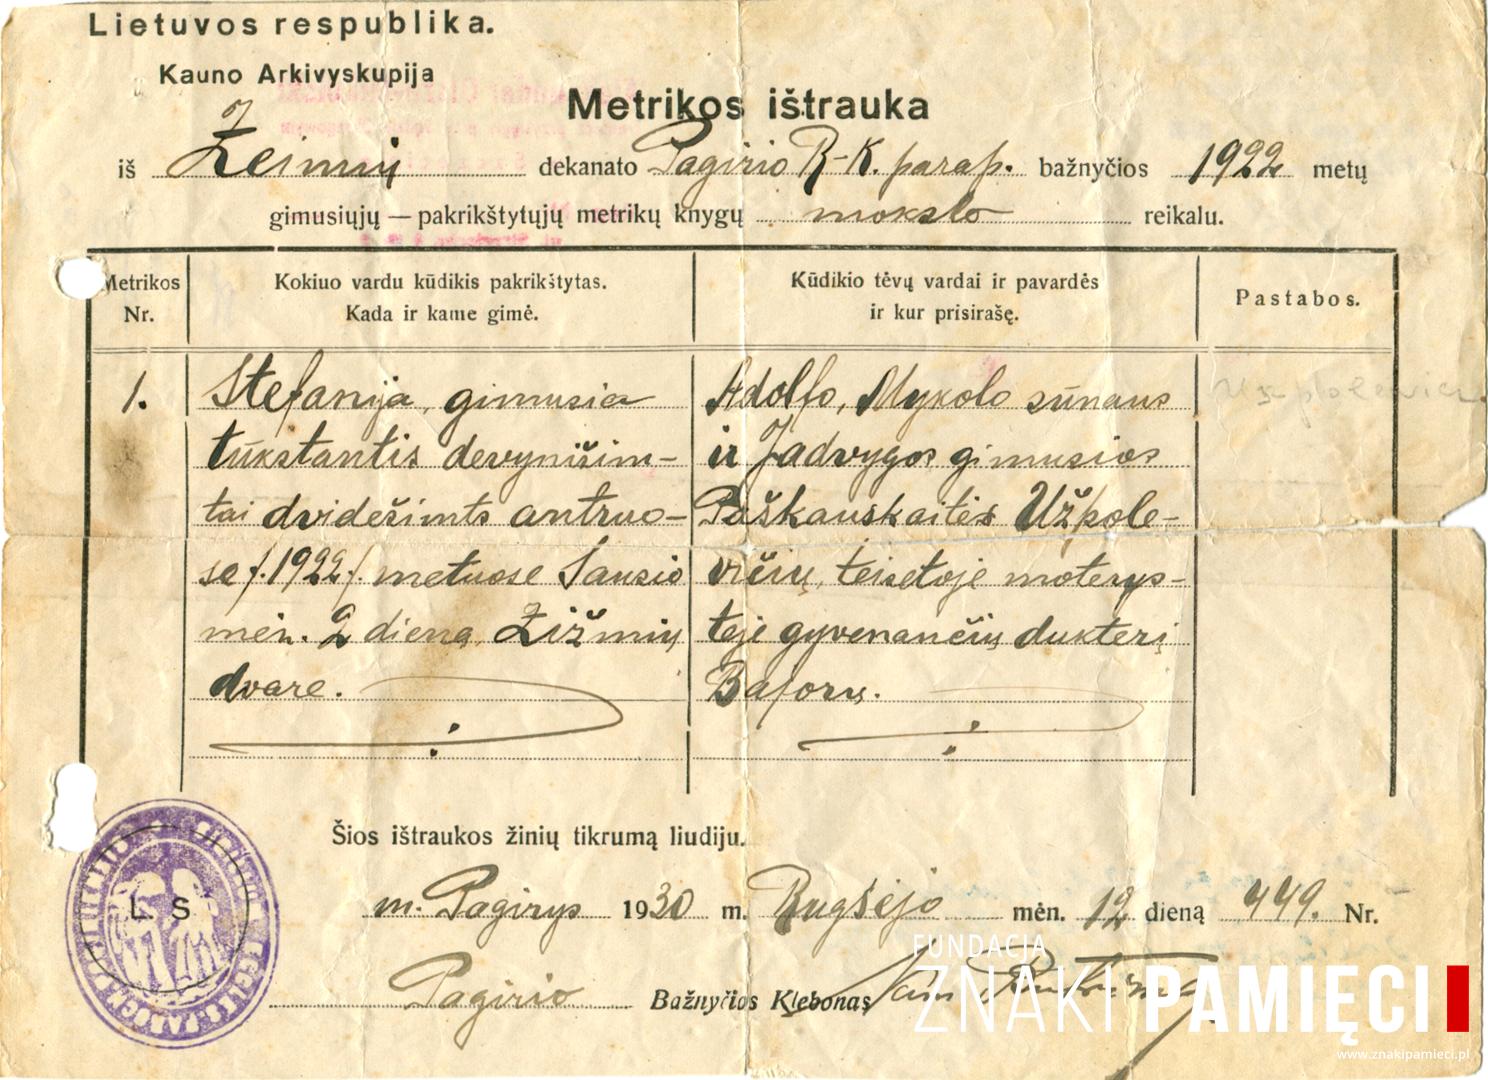 Lietuvos respublika.
Kauno Arkivyskupija
Metrikos ištrauka
iš Žeimių dekanato Pagirio R-K. parap. bažnyčios 1922 metų
gimusiųjų — pakrikštytųjų metrikų knygų mokslo reikalu.
Metrikos Nr.
Kokiuo vardu kūdikis pakrikštytas.
Kada ir kame gimė.
Kūdikio tėvų vardai ir pavardės
ir kur prisirašę.
Pastabos.
1.
Stefanija, gimusia
tūkstantis devynišim-
tai dvidešimts antruo-
se /.1922/. metuose Sausio
mėn. 2 dieną, Žižmių
dvare.
Adolfo, Mykolo sūnaus
ir Jadvygos gimusios
Paškauskaitės Užpole-
vičių, teisėtoje moterys-
tėje gyvenančių dukterį
Bajorų.
Šios ištraukos žinių tikrumą liudiju.
L. S.
m. Pagirys 1930 m. Rugsėjo mėn. 12 dieną 449. Nr.
Pagirio Bažnyčios Klebonas
FUNDACJA
ZNAKI PAMIĘCI
www.znakipamieci.pl